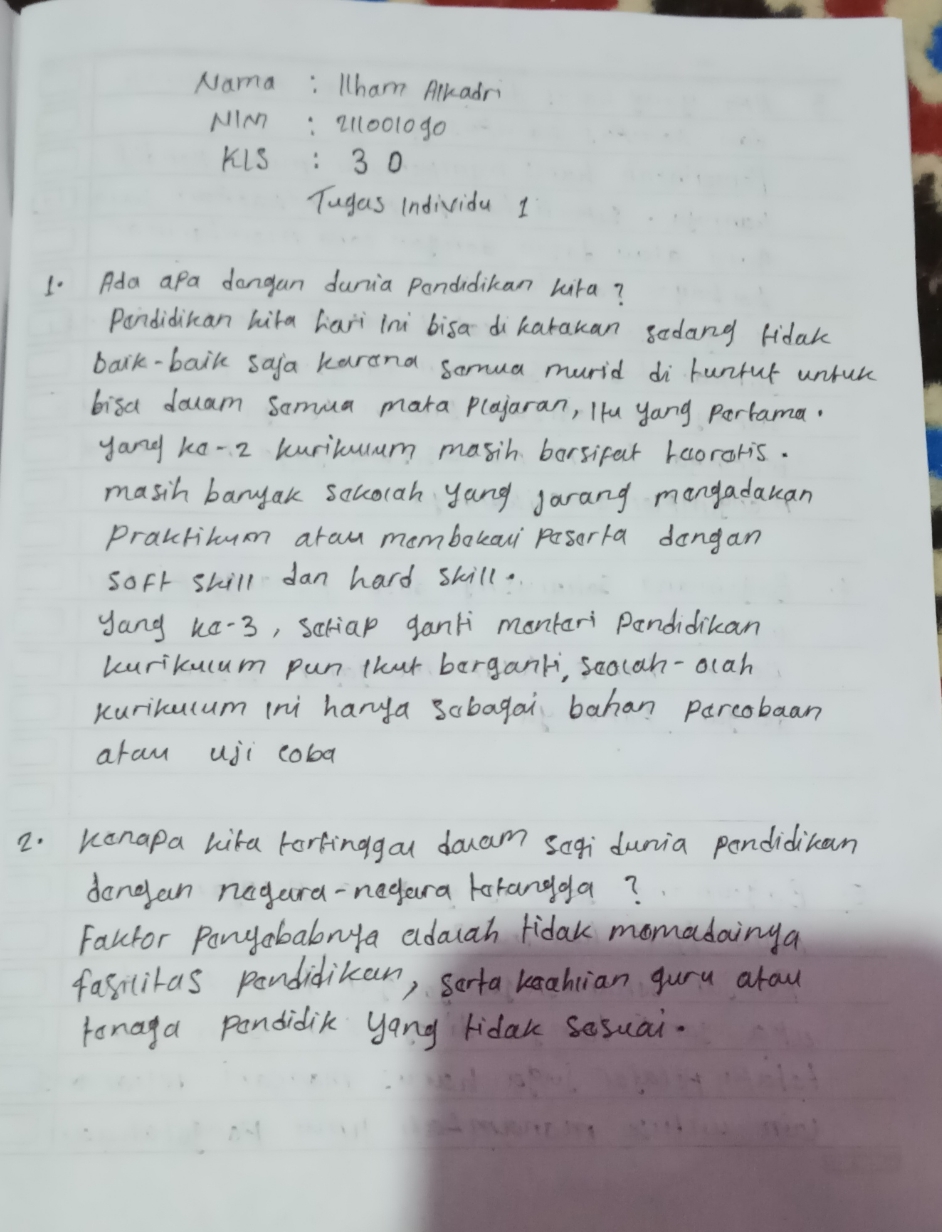 Nama : Ilham Alkadri
NIM : 211001090
KLS : 30
Tugas Individu 1
1. Ada apa dengan dunia Pendidikan kita ?
Pendidikan kita hari ini bisa di katakan sedang tidak
baik-baik saja karena semua murid di tuntut untuk
bisa dalam semua mata Plajaran, Itu yang Pertama.
yang ke-2 kurikulum masih bersifat teoretis.
masih banyak sekolah yang jarang mengadakan
Praktikum atau membekali Peserta dengan
soft skill dan hard skill.
Yang ke-3, setiap ganti menteri Pendidikan
kurikulum pun ikut berganti, seolah-olah
kurikulum ini hanya sebagai bahan percobaan
atau uji coba
2. Kenapa kita tertinggal dalam segi dunia pendidikan
dengan negara-negara tetangga ?
Faktor Penyebabnya adalah tidak memadainya
fasilitas pendidikan, serta keahlian guru atau
tenaga pendidik yang tidak sesuai.